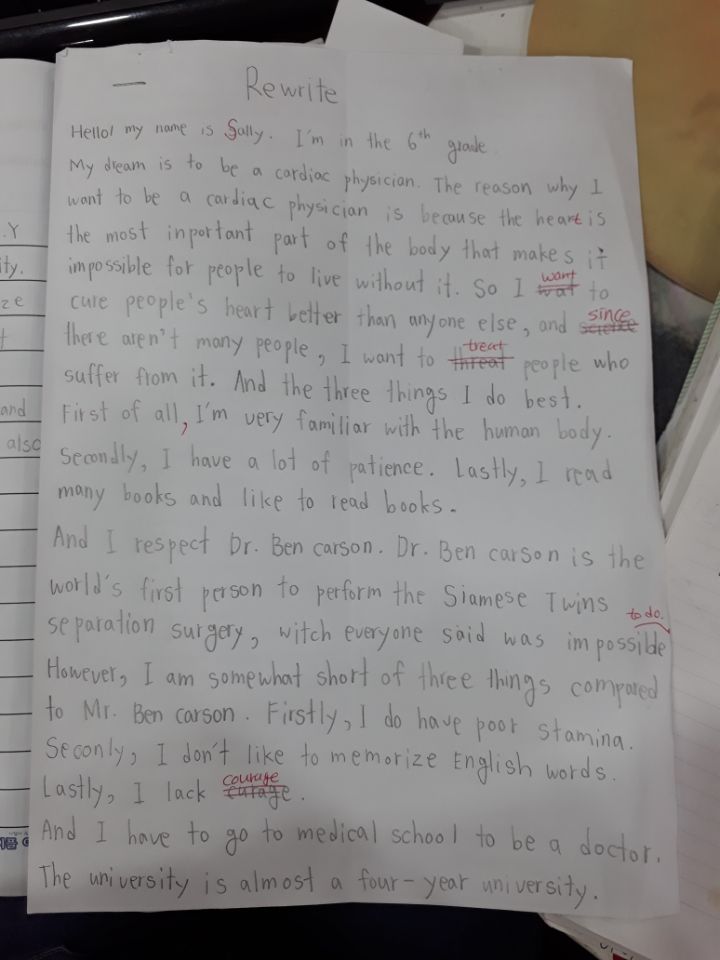 Rewrite
Hello! my name is Sally. I'm in the 6th grade.
My dream is to be a cardiac physician. The reason why I
want to be a cardiac physician is because the heart is
the most inportant part of the body that makes it
impossible for people to live without it. So I wat want to
cure people's heart better than anyone else, and since
there aren't many people, I want to threat treat people who
suffer from it. And the three things I do best.
First of all, I'm very familiar with the human body.
Secondly, I have a lot of patience. Lastly, I read
many books and like to read books.
And I respect Dr. Ben carson. Dr. Ben carson is the
world's first person to perform the Siamese Twins
separation surgery, witch everyone said was impossible to do.
However, I am somewhat short of three things compared
to Mr. Ben carson. Firstly, I do have poor stamina.
Seconly, I don't like to memorize English words.
Lastly, I lack curage courage.
And I have to go to medical school to be a doctor.
The university is almost a four-year university.
.Y
ity.
ze
t
and
also